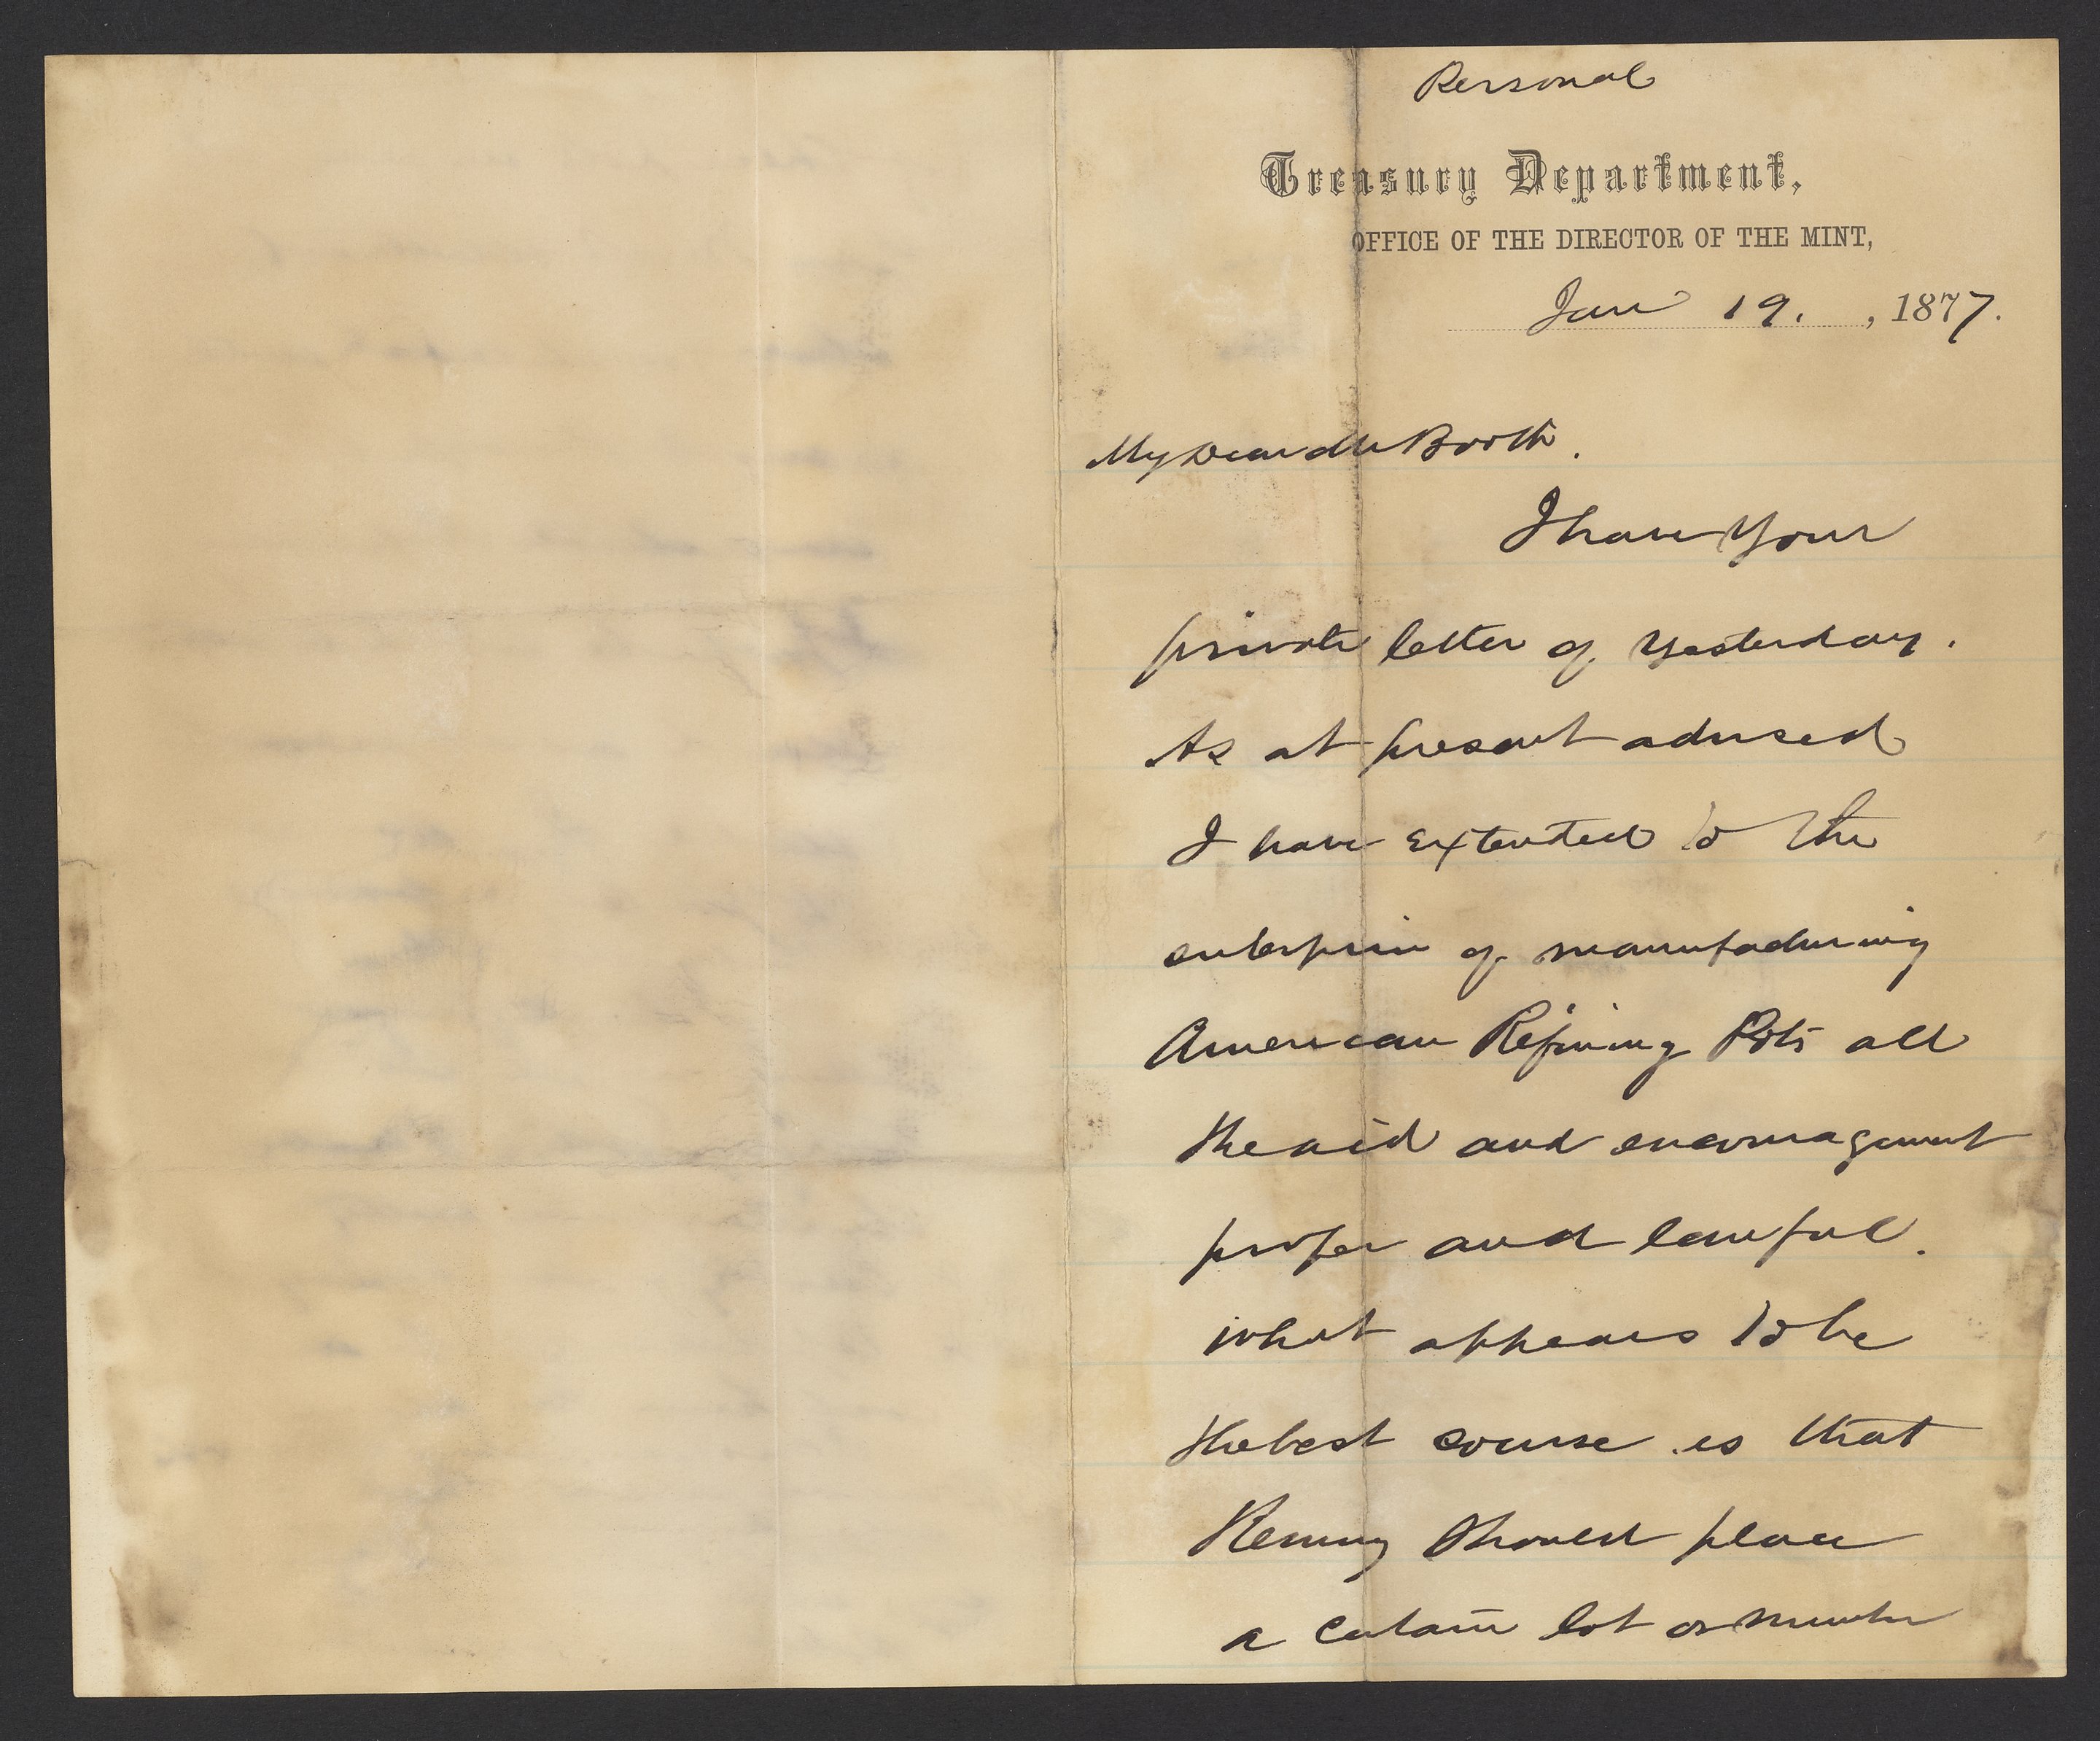 Personal
Treasury Department,
OFFICE OF THE DIRECTOR OF THE MINT,
Jan 19. , 1877.
My Dear Mr Booth.
I have your
private letter of yesterday.
As at present advised
I have extended to the
enterprise of manufacturing
American Refining Pots all
the aid and encouragement
proper and lawful.
What appears to be
the best course is that
should place
a certain lot or number